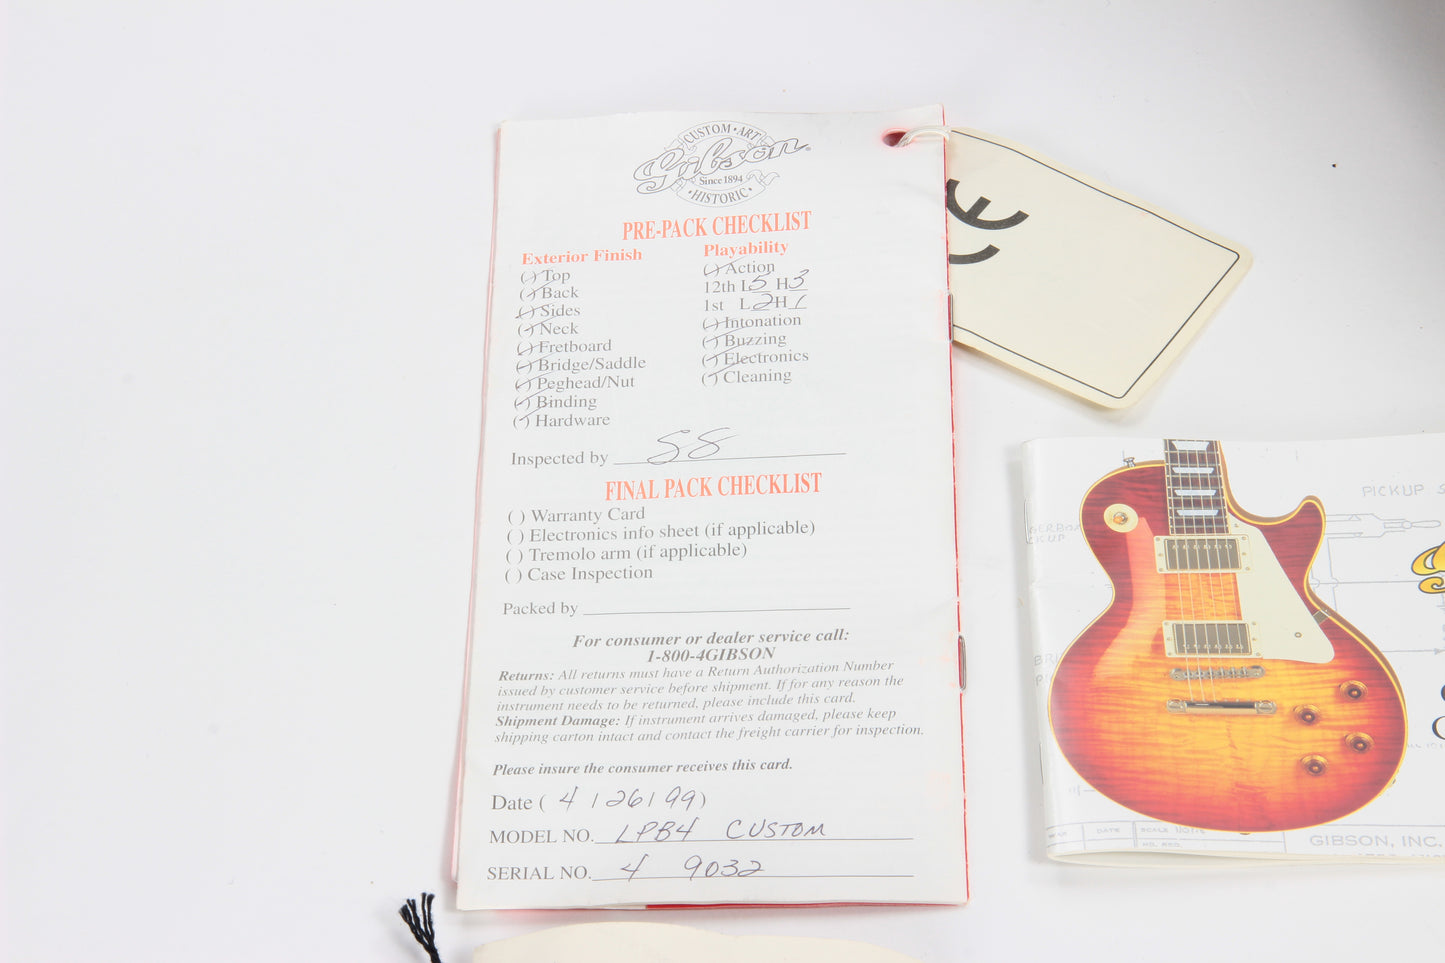 CUSTOM • ART
Gibson
Since 1894
• HISTORIC •
PRE-PACK CHECKLIST
Exterior Finish
(✓) Top
(✓) Back
(✓) Sides
(✓) Neck
(✓) Fretboard
(✓) Bridge/Saddle
(✓) Peghead/Nut
(✓) Binding
(✓) Hardware
Playability
(✓) Action
12th L 5 H 3
1st L 2 H 1
(✓) Intonation
(✓) Buzzing
(✓) Electronics
(✓) Cleaning
Inspected by SS
FINAL PACK CHECKLIST
( ) Warranty Card
( ) Electronics info sheet (if applicable)
( ) Tremolo arm (if applicable)
( ) Case Inspection
Packed by
For consumer or dealer service call:
1-800-4GIBSON
Returns: All returns must have a Return Authorization Number
issued by customer service before shipment. If for any reason the
instrument needs to be returned, please include this card.
Shipment Damage: If instrument arrives damaged, please keep
shipping carton intact and contact the freight carrier for inspection.
Please insure the consumer receives this card.
Date ( 4 / 26 / 99 )
MODEL NO. LPB4 CUSTOM
SERIAL NO. 4 9032
CE
PICKUP S
DATE
SCALE
GIBSON, INC.